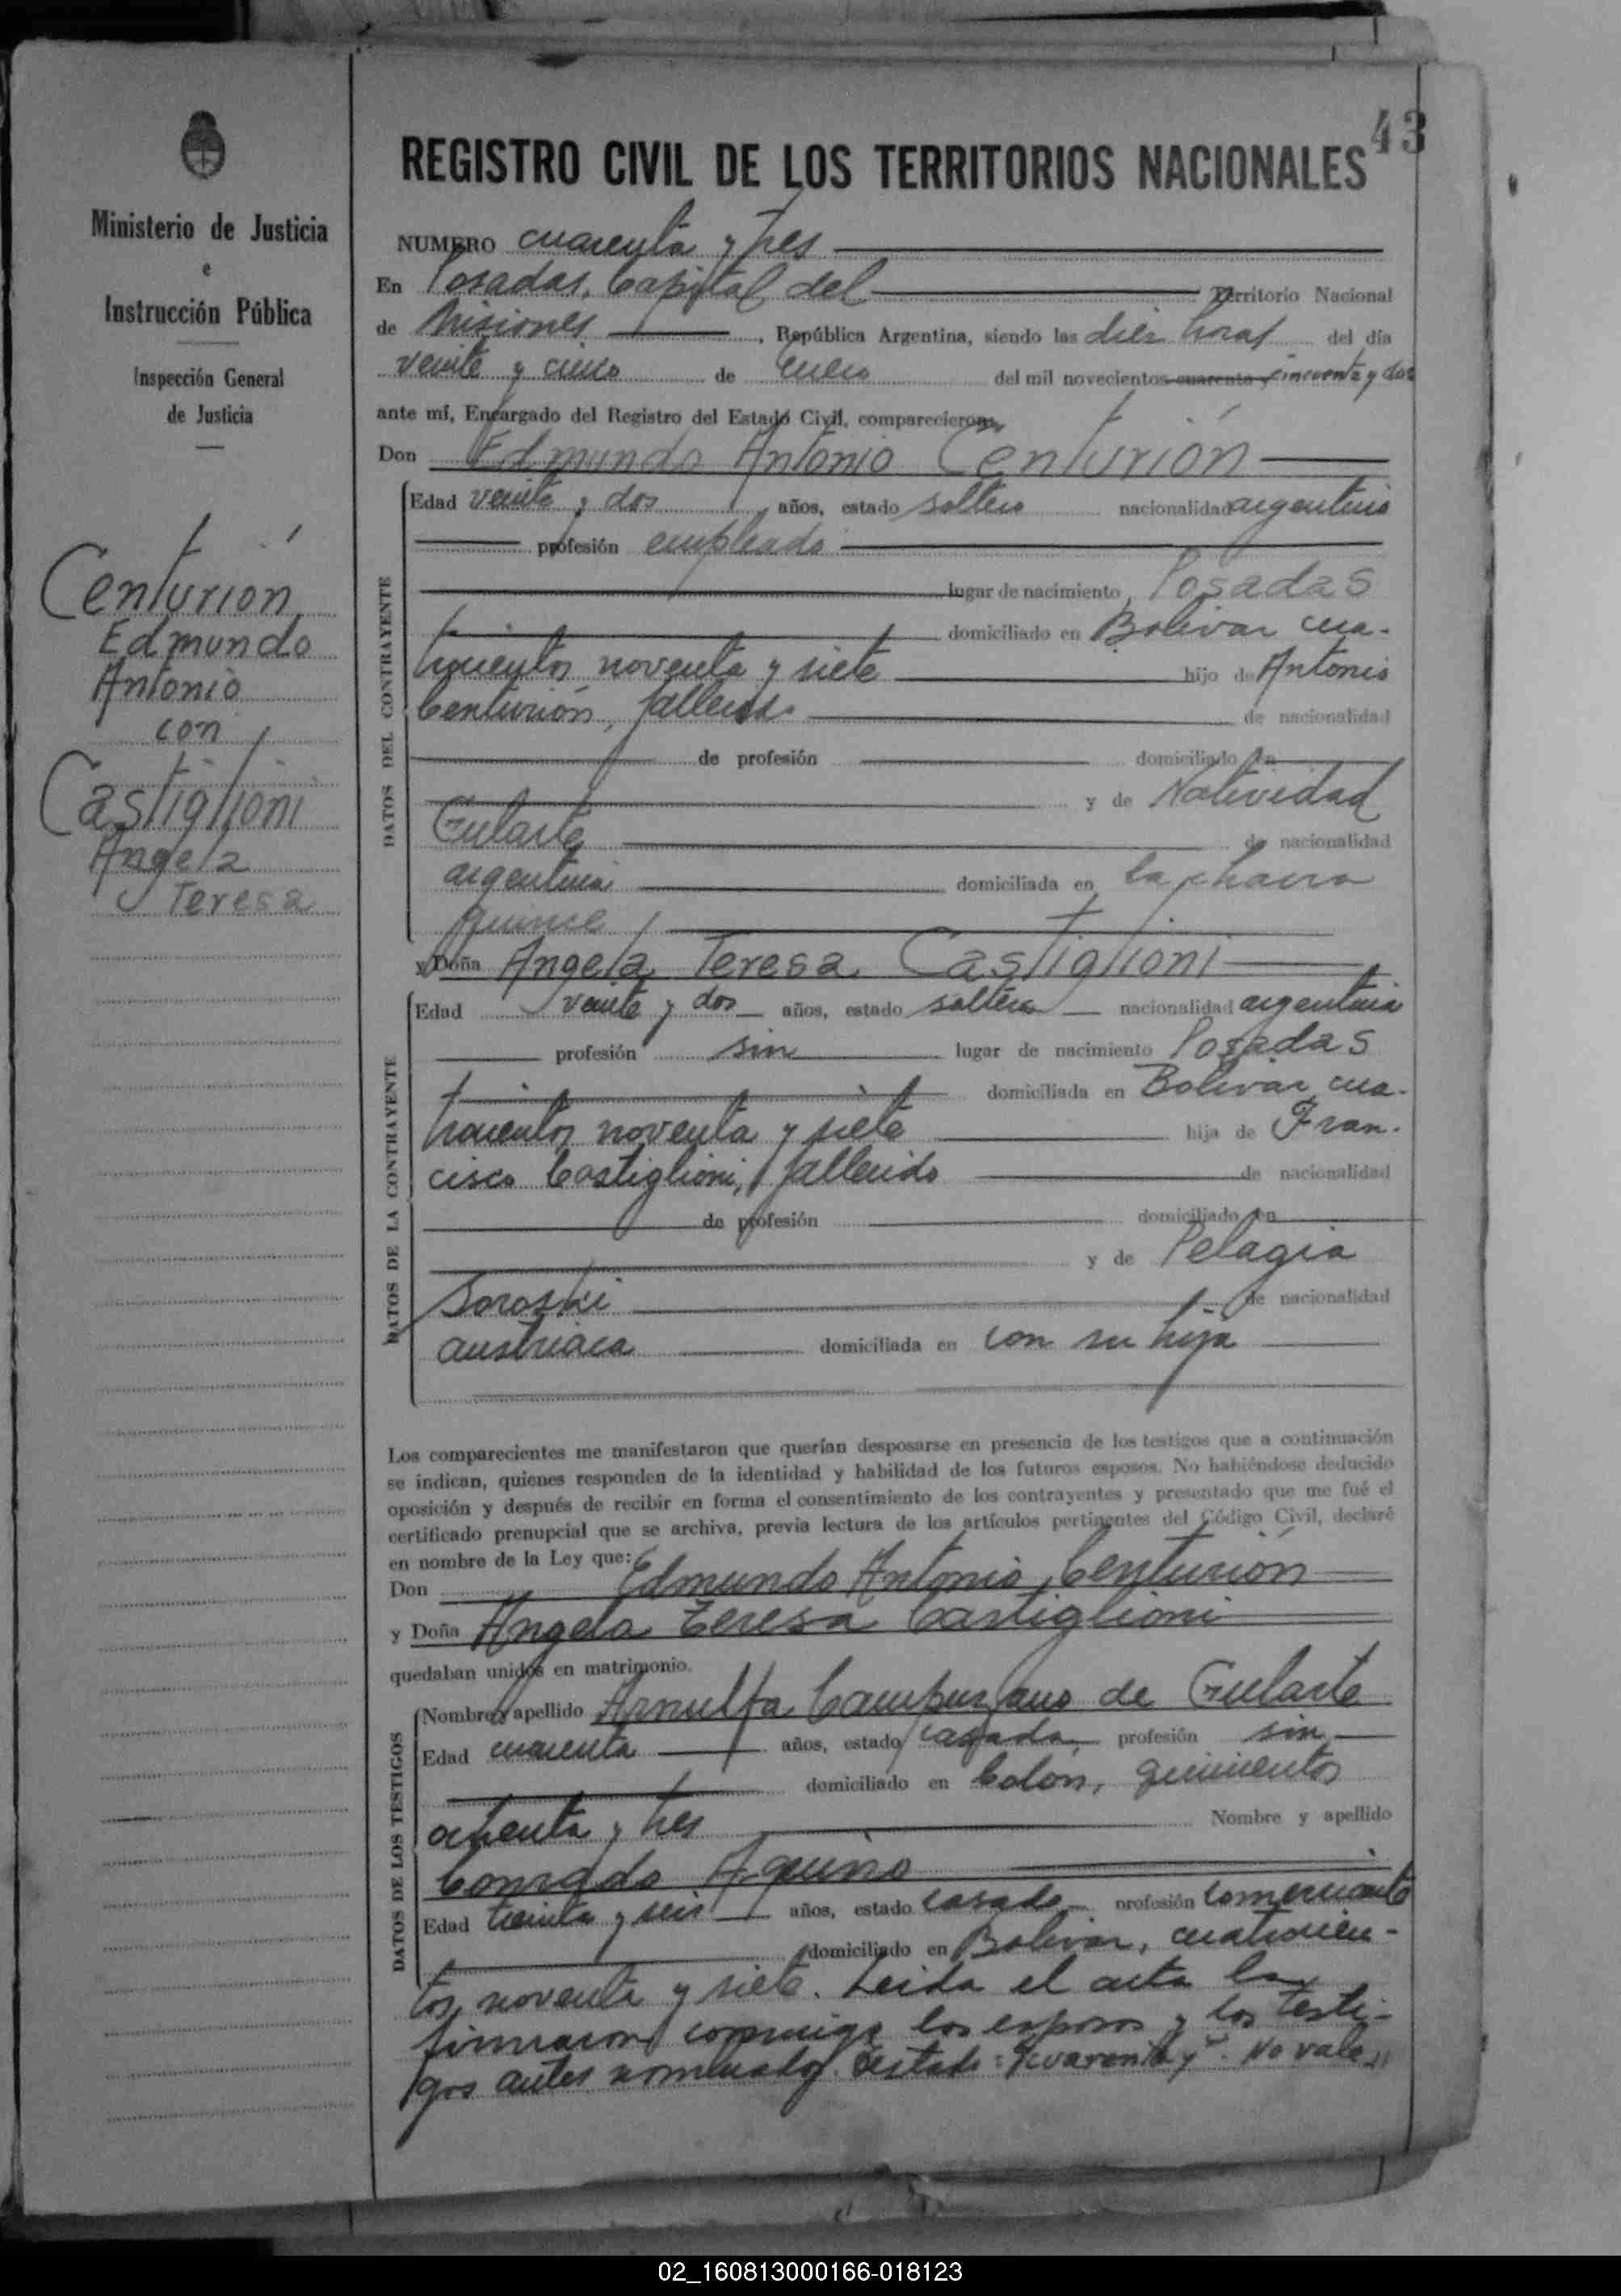 43
REGISTRO CIVIL DE LOS TERRITORIOS NACIONALES
Ministerio de Justicia
e
Instrucción Pública
Inspección General
de Justicia
Centurión
Edmundo
Antonio
con
Castiglioni
Angela
Teresa
NUMERO cuarenta y tres
En Posadas, Capital del Territorio Nacional
de Misiones, República Argentina, siendo las diez horas del día
veinte y cinco de Enero del mil novecientos cuarenta y cincuenta y dos
ante mí, Encargado del Registro del Estado Civil, comparecieron
Don Edmundo Antonio Centurión
DATOS DEL CONTRAYENTE
Edad veinte y dos años, estado soltero nacionalidad argentino
profesión empleado
lugar de nacimiento Posadas
domiciliado en Bolivar cua-
trocientos noventa y siete hijo de Antonio
Centurión, fallecido de nacionalidad
de profesión domiciliado en
y de Natividad
Gularte de nacionalidad
argentina domiciliada en la chacra
quince
y Doña Angela Teresa Castiglioni
DATOS DE LA CONTRAYENTE
Edad veinte y dos años, estado soltera nacionalidad argentina
profesión sin lugar de nacimiento Posadas
domiciliada en Bolivar, cua-
trocientos noventa y siete hija de Fran-
cisco Castiglioni, fallecido de nacionalidad
de profesión domiciliado en
y de Pelagia
Soroski de nacionalidad
austriaca domiciliada en con su hija
Los comparecientes me manifestaron que querían desposarse en presencia de los testigos que a continuación
se indican, quienes responden de la identidad y habilidad de los futuros esposos. No habiéndose deducido
oposición y después de recibir en forma el consentimiento de los contrayentes y presentado que me fué el
certificado prenupcial que se archiva, previa lectura de los artículos pertinentes del Código Civil, declaré
en nombre de la Ley que:
Don Edmundo Antonio Centurión
y Doña Angela Teresa Castiglioni
quedaban unidos en matrimonio.
DATOS DE LOS TESTIGOS
Nombre y apellido Arnulfa Campuzano de Gularte
Edad cuarenta años, estado casada, profesión sin
domiciliado en Colon, quinientos
ochenta y tres Nombre y apellido
Conrado Aquino
Edad treinta y seis años, estado casado profesión comerciante
domiciliado en Bolivar, cuatrocien-
tos noventa y siete. Leida el acta la
firmaron conmigo los esposos y los testi-
gos antes nombrados. Testado: "cuarenta y". No vale.
02_160813000166-018123